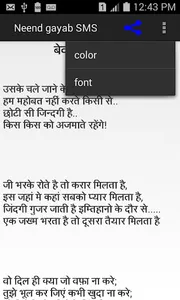 12:43 PM
Neend gayab SMS
color
font
उसके चले जाने के
हम महोबत नहीं करते किसी से..
छोटी सी जिन्दगी है..
किस किस को अजमाते रहेंगे!
जी भरके रोते है तो करार मिलता है,
इस जहां मे कहां सबको प्यार मिलता है,
जिंदगी गुजर जाती है इम्तिहानो के दौर से.....
एक जख्म भरता है तो दूसरा तैयार मिलता है
वो दिल ही क्या जो वफ़ा ना करे;
तुझे भूल कर जिएं कभी खुदा ना करे;